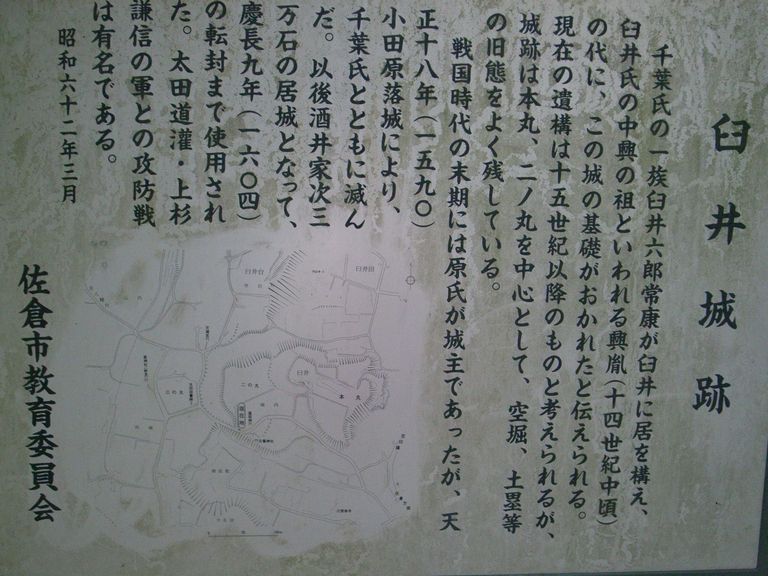 臼井城跡
千葉氏の一族臼井六郎常康が臼井に居を構え、
臼井氏の中興の祖といわれる興胤(十四世紀中頃)
の代に、この城の基礎がおかれたと伝えられる。
現在の遺構は十五世紀以降のものと考えられるが、
城跡は本丸、二ノ丸を中心として、空堀、土塁等
の旧態をよく残している。
戦国時代の末期には原氏が城主であったが、天
正十八年(一五九〇)
小田原落城により、
千葉氏とともに滅ん
だ。以後酒井家次三
万石の居城となって、
慶長九年(一六〇四)
の転封まで使用され
た。太田道灌・上杉
謙信の軍との攻防戦
は有名である。
昭和六十二年三月
佐倉市教育委員会
臼井田
臼井台
臼井
本丸
二の丸
三の丸
現在地